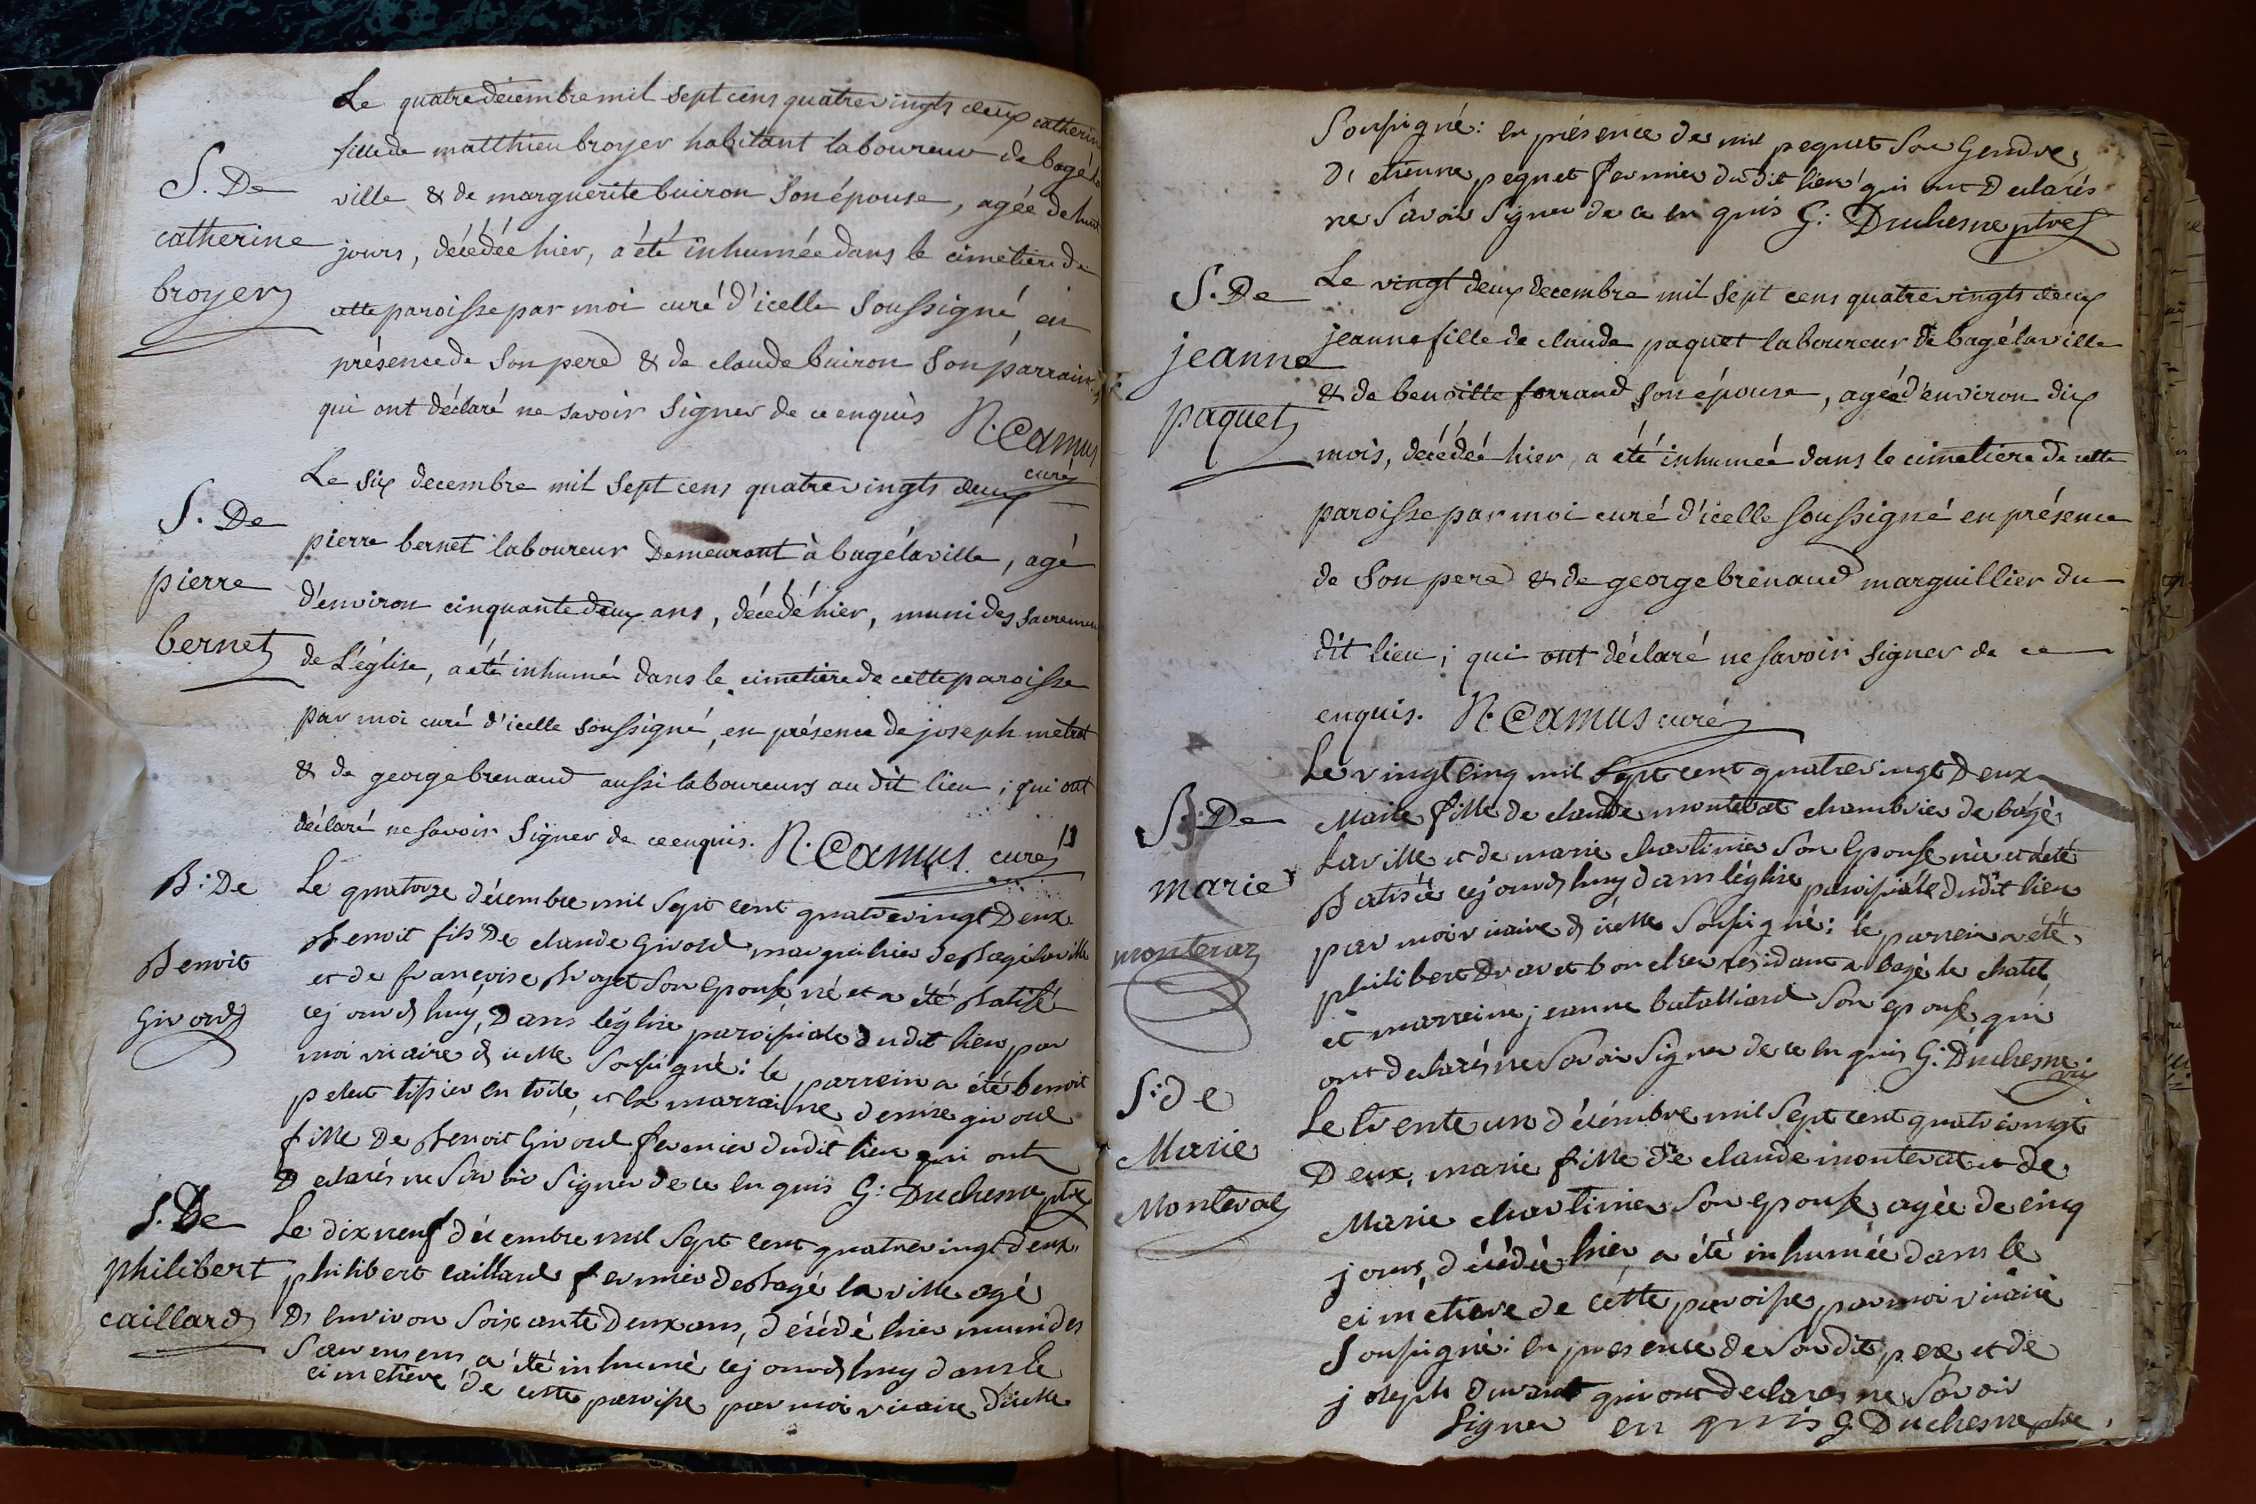 Le quatre décembre mil sept cens quatrevingts deux catherine
fille de matthieu broyer habitant laboureur de bagé la
S. De
ville & de marguerite buiron son épouse, agée de huit
catherine
jours, décédée hier, a été inhumée dans le cimetiere de
broyer
cette paroisse par moi curé d'icelle soussigné, en
présence de son pere & de claude buiron son parrain,
qui ont déclaré ne savoir signer de ce enquis N. Camus
curé
Le six decembre mil sept cens quatrevingts deux
S. De
pierre bernet laboureur demeurant à bagé la ville, agé
pierre
d'environ cinquante deux ans, décédé hier, muni des sacremens
bernet
de l'église, a été inhumé dans le cimetiere de cette paroisse
par moi curé d'icelle soussigné, en présence de joseph metrat
& de george brenaud aussi laboureurs au dit lieu ; qui ont
déclaré ne savoir signer de ce enquis. N. Camus curé
B: De
Le quatorze décembre mil sept cent quatrevingt Deux
Benoit fils De claude Givord marguilier de Bagé la ville
Benoit
et de françoise Broyet son epouse né et a été Batisé
Givord
cejourdhuy, Dans léglise paroissiale dudit lieu par
moi vicaire d'icelle soussigné: le parrein a été benoit
pelut tissier en toile, et la marraine denise givord
fille De Benoit Givord fermier dudit lieu qui ont
Declarés ne savoir signer de ce enquis G: Duchesne ptre
S. De
Le dix neuf décembre mil sept cent quatrevingt deux
philibert
philibert caillard fermier de Bagé la ville agé
caillard
D'environ soixante Deux ans, décédé hier muni des
sacremens, a été inhumé cejourdhuy dans le
cimetiere de cette paroisse par moi vicaire d'icelle
soussigné: en présence de mil pequet son Gendre,
D'etienne pequet fermier dudit lieu qui ont Declarés
ne savoir signer de ce enquis G: Duchesne ptre
S. De
Le vingt deux decembre mil sept cens quatrevingts deux
jeanne
jeanne fille de claude paquet laboureur de bagé la ville
paquet
& de benoitte ferrand son épouse, agée d'environ dix
mois, décédée hier, a été inhumée dans le cimetiere de cette
paroisse par moi curé d'icelle soussigné en présence
de son pere & de george brenaud marguillier du
dit lieu ; qui ont déclaré ne savoir signer de ce
enquis. N. Camus curé
Le vingt cinq mil sept cent quatrevingt Deux
B: De
Marie fille de claude montevat chambrier de bagé
laville et de marie charlimier son epouse née et a été
marie
Batisée cejourdhuy dans léglise paroissiale dudit lieu
montevaz
par moi vicaire d'icelle soussigné: le parrein a été
philibert Dravet boucher residant a bagé le chatel
et marreine jeanne batalliard son epouse qui
ont declarés ne savoir signer de ce enquis G: Duchesne vic
S: de
Le trente un décembre mil sept cent quatrevingt
Marie
Deux, marie fille de claude montevat et de
Montevat
Marie charlimier son epouse, agée de cinq
jours, décédée hier, a été inhumée dans le
cimetiere de cette paroisse par moi vicaire
soussigné: en presence de son dit pere et de
joseph durand qui ont declarés ne savoir
signer enquis G. Duchesne ptre